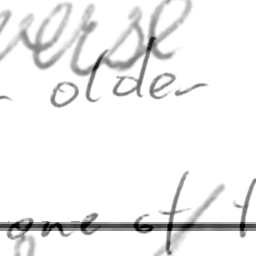 verse
older
one of t